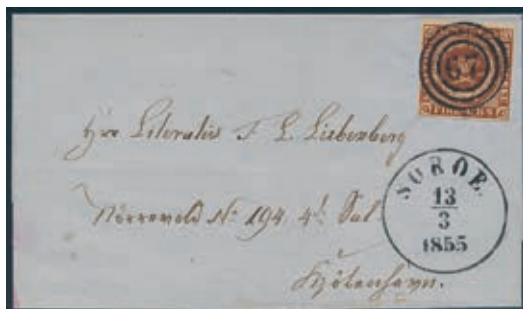 67
FIRE R.B.S.
Hrr Literatus F. L. Liebenberg
Nörrevold No 194, 4d Sal.
Kjöbenhavn.
SOROE.
13
3
1855